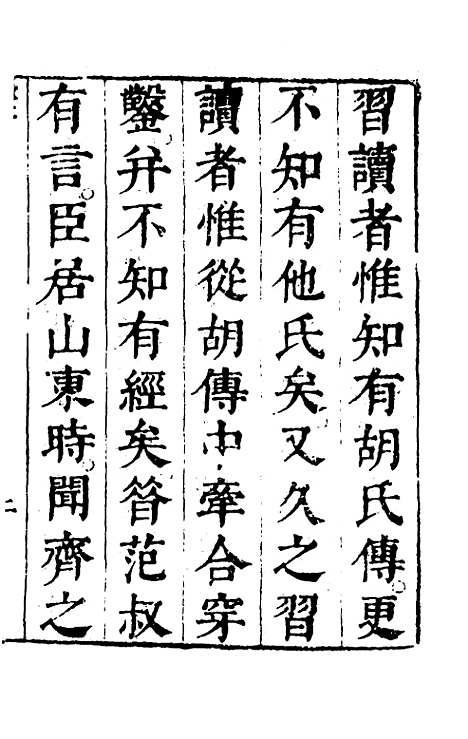 習讀者惟知有胡氏傳更
不知有他氏矣又久之習
讀者惟從胡傳中牽合穿
鑿幷不知有經矣昝范叔
有言臣居山東時聞齊之
二